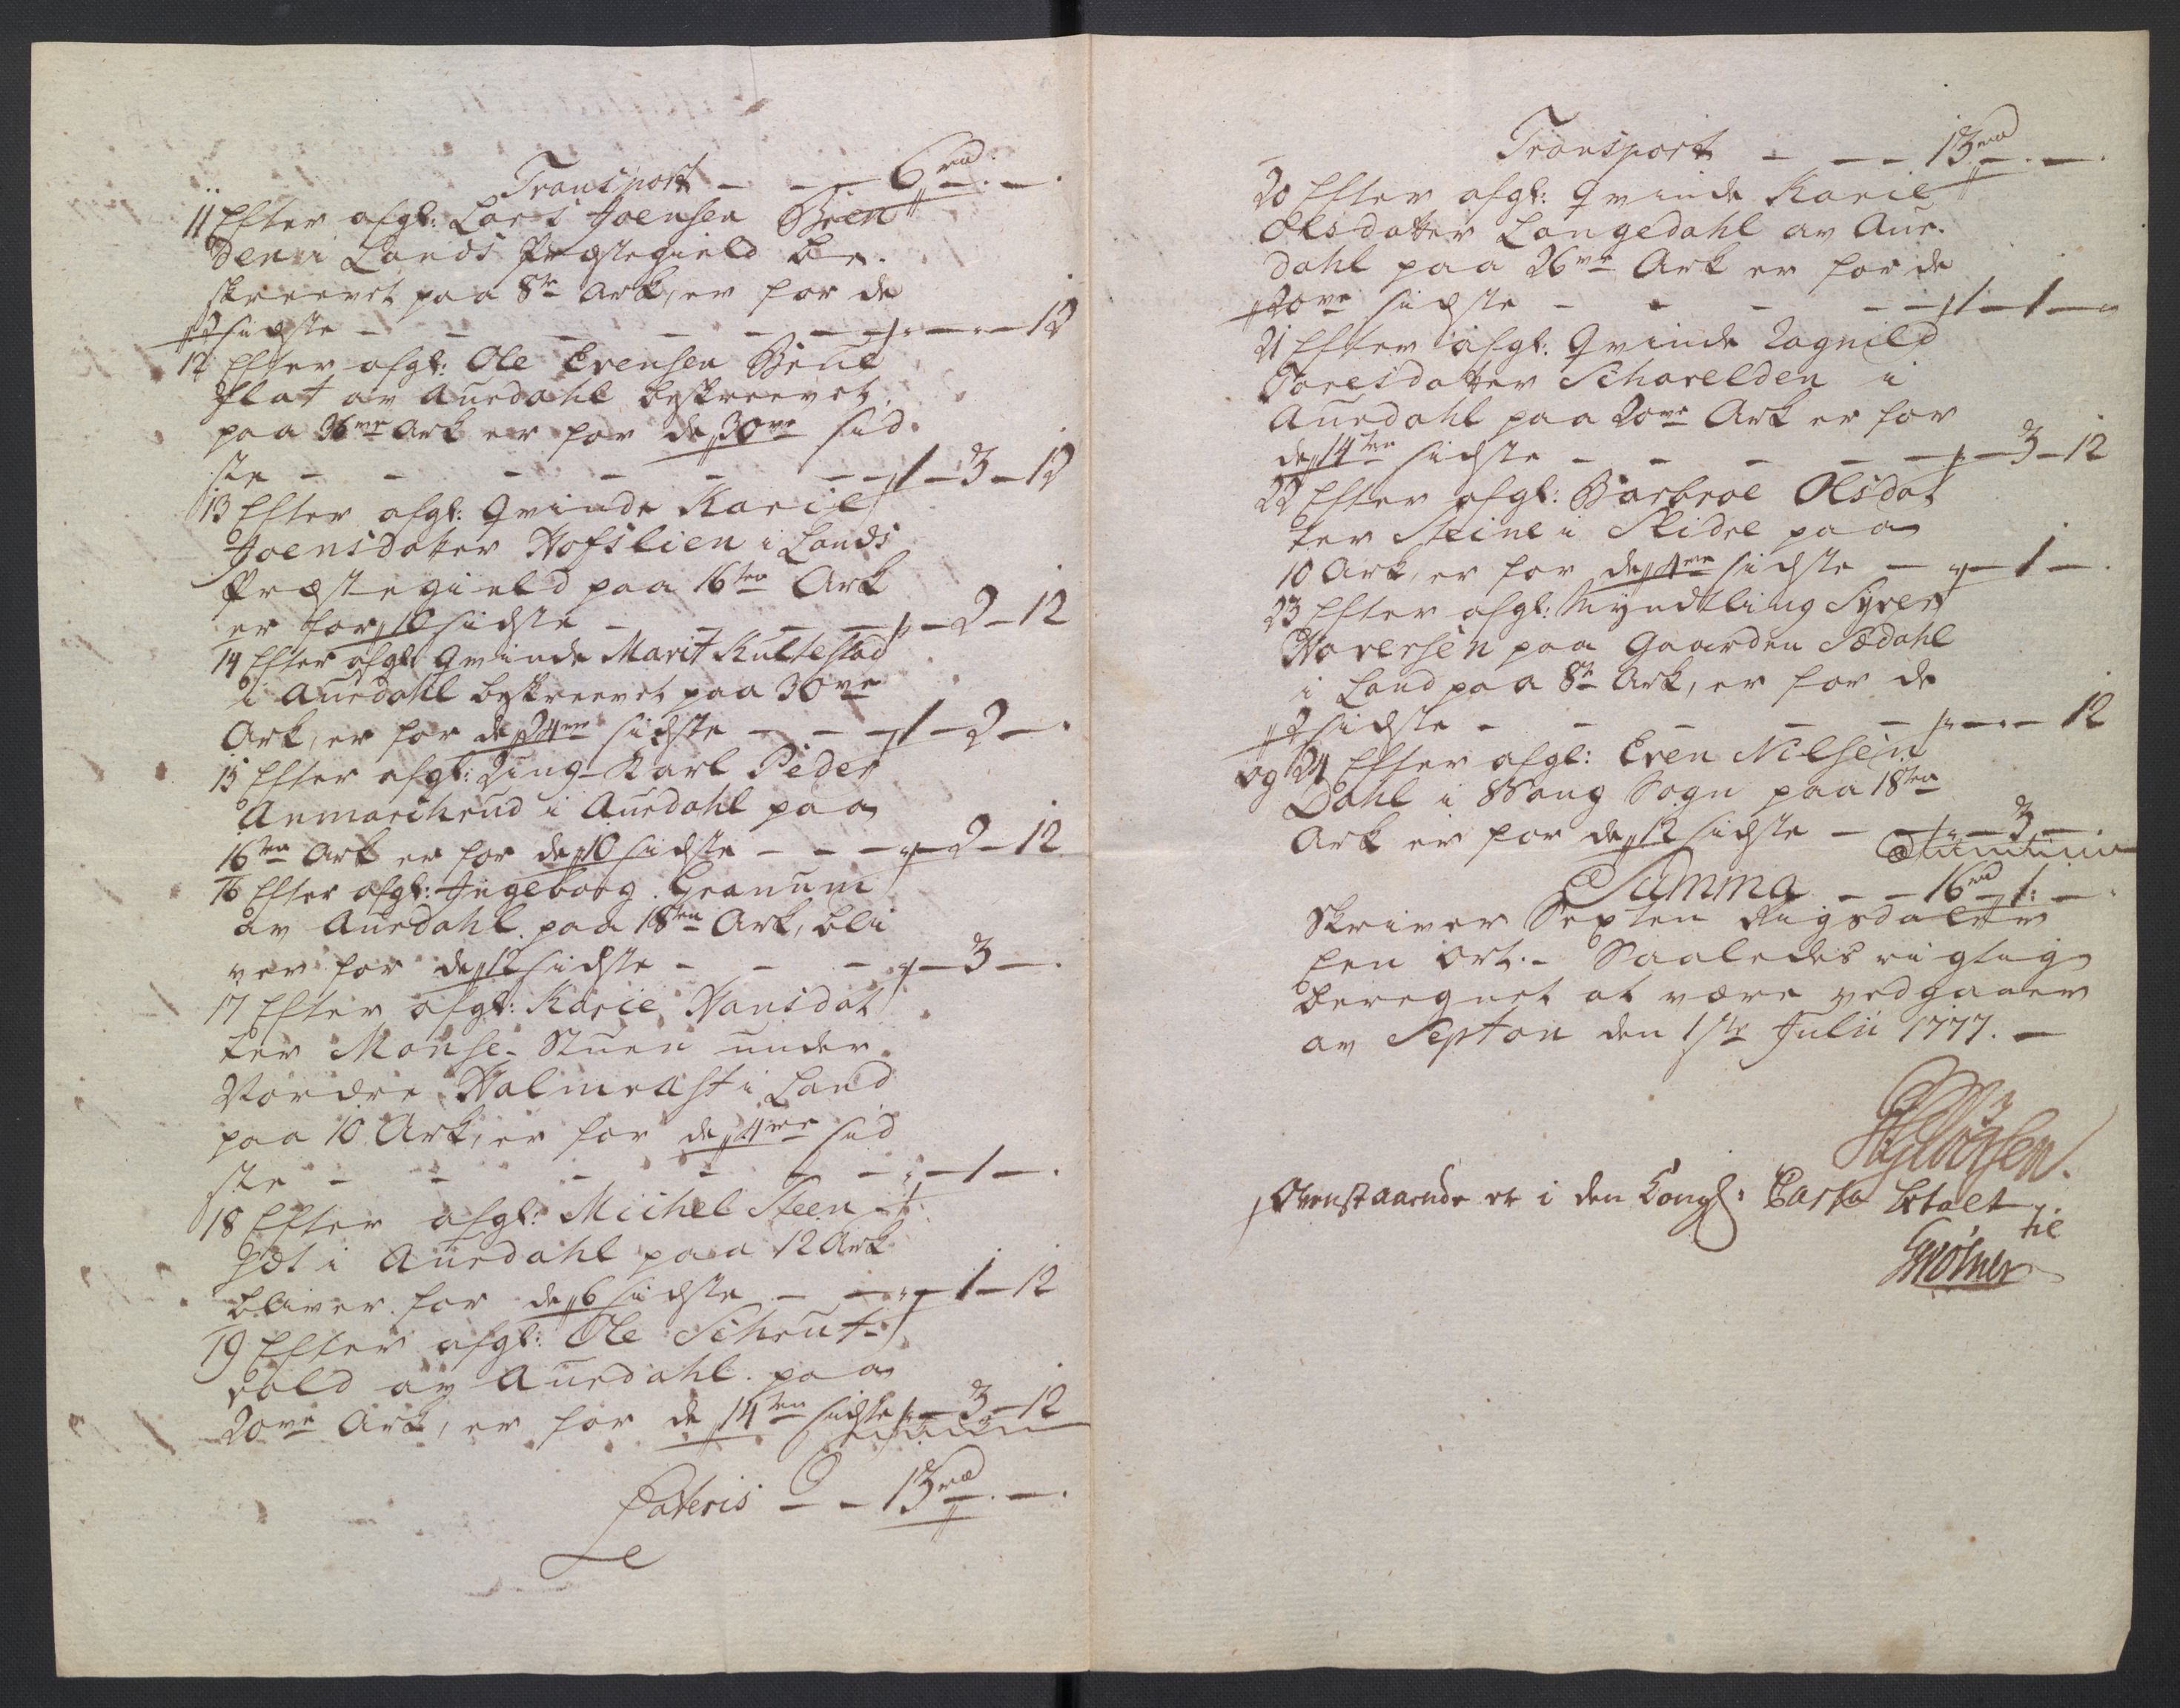 Transport - - - 6 rd „ - . - .
11 Efter afgl: Lars Joensen Bren
den i Lands Præstegield be-
skreevet paa 8te Ark, er for de
„2 sidste - - - - - - - „ - „ - 12
12 Efter afgl: Ole Evensen Brue
flat av Aurdahl beskreevet
paa 36ve Ark er for de „30ve sid
ste - - - - - - - 1 - 3 - 12
13 Efter afgl: Qvinde Karie
Joensdatter Hofslien i Lands
Præstegield paa 16ten Ark
er for „10 sidste - - - - „ - 2 - 12
14 Efter afgl: Qvinde Marit Kultestad
i Aurdahl beskreevet paa 30ve
Ark, er for de „24ve sidste - - - 1 - 2 - .
15 Efter afgl: Ung-Karl Peder
Anmarkrud i Aurdahl paa
16ten Ark er for de „10 sidste - - - „ - 2 - 12
16 Efter afgl: Ingeborg Granum
av Aurdahl paa 18ten Ark, bli
ver for de „12 sidste - - - „ - 3 - .
17 Efter afgl: Karie Hansdat
ter Monse-Stuen under
Nordre Halmrast i Land
paa 10 Ark, er for de „4re sid
ste - - - - - - „ - 1 - .
18 Efter afgl: Michel Steen-
sæt i Aurdahl paa 12 Ark
bliver for de „6 sidste - - „ - 1 - 12
19 Efter afgl: Ole Schrut-
vold av Aurdahl paa
20ve Ark, er for de „14ten sidste „ - 3 - 12
Lateris - - 13 rd „ - . - .
Transport - - - 13 rd „ - . - .
20 Efter afgl: Qvinde Karie
Olsdatter Langedahl av Aur-
dahl paa 26ve Ark er for de
„20ve sidste - - - - - „ 1 - 1 - „
21 Efter afgl: Qvinde Ragnild
Toresdatter Scharelden i
Aurdahl paa 20ve Ark er for
de „14ten sidste - - - - - „ - 3 - 12
22 Efter afgl: Barbroe Olsdat
ter Steine i Slidre paa
10 Ark, er for de „4re sidste - „ - 1 - .
23 Efter afgl: Myndtling Syver
Haversen paa Gaarden Sædahl
i Land paa 8te Ark, er for de
„2 sidste - - - - - „ - „ - 12
og 24 Efter afgl: Even Nilsen
Dahl i Wang Sogn paa 18ten
Ark er for de „12 sidste - - „ - 3 - .
Summa - - 16 rd „ 1: - .
Skriver Sexten Rigsdaler
Een Ort. - Saaledes rigtig
beregnet at være vedgaaer
av Septon den 1ste Julii 1777. -
Ovenstaaende er i den Kongl: Cassa betalt
til